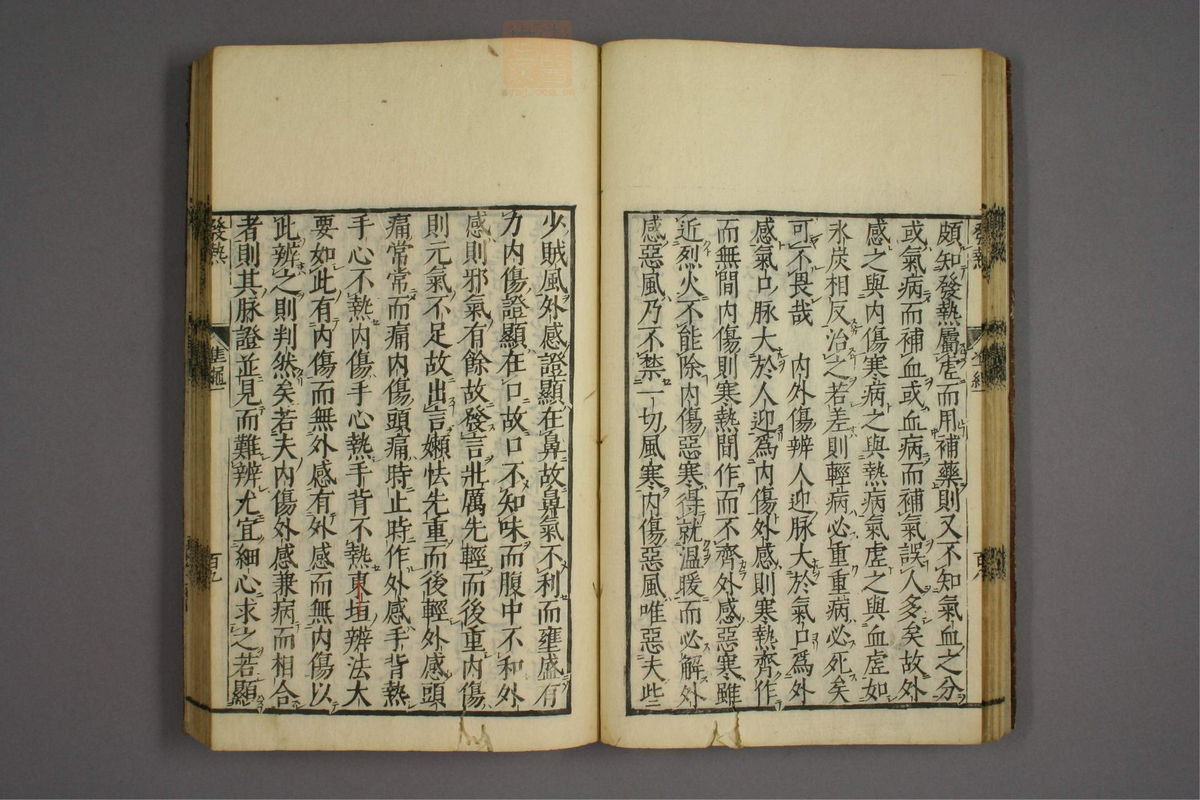 頗知發熱屬虛而用補藥則又不知氣血之分
或氣病而補血或血病而補氣誤人多矣故外
感之與內傷寒病之與熱病氣虛之與血虛如
氷炭相反治之若差則輕病必重重病必死矣
可不畏哉　內外傷辨人迎脉大於氣口爲外
感氣口脉大於人迎爲內傷外感則寒熱齊作
而無間內傷則寒熱間作而不齊外感惡寒雖
近烈火不能除內傷惡寒得就溫暖而必解外
感惡風乃不禁一切風寒內傷惡風唯惡夫些
少賊風外感證顯在鼻故鼻氣不利而壅盛有
力內傷證顯在口故口不知味而腹中不和外
感則邪氣有餘故發言壯厲先輕而後重內傷
則元氣不足故出言嬾怯先重而後輕外感頭
痛常常而痛內傷頭痛時止時作外感手背熱
手心不熱內傷手心熱手背不熱東垣辨法大
要如此有內傷而無外感有外感而無內傷以
此辨之則判然矣若夫內傷外感兼病而相合
者則其脉證並見而難辨尤宜細心求之若顯
發熱　準繩一　百九